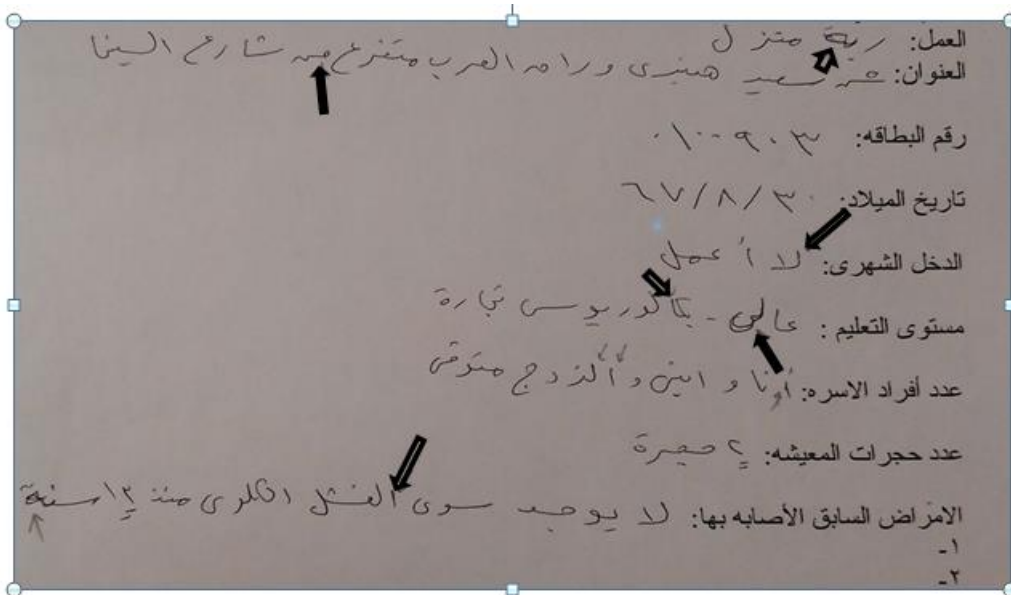 العمل: ربة منزل
العنوان: ش سعيد هندى وراه العرب متفرع من شارع السينما
رقم البطاقه: ٠١٠٠٩٠٣
تاريخ الميلاد: ٦٧/٨/٣٠
الدخل الشهرى: لا أعمل
مستوى التعليم : عالى - بكالوريوس تجارة
عدد أفراد الاسره: أنا و ابنى و الزوج متوفى
عدد حجرات المعيشه: ٢ حجرة
الامراض السابق الأصابه بها: لا يوجد سوى الفشل الكلوى منذ ١٢ سنة
١-
٢-